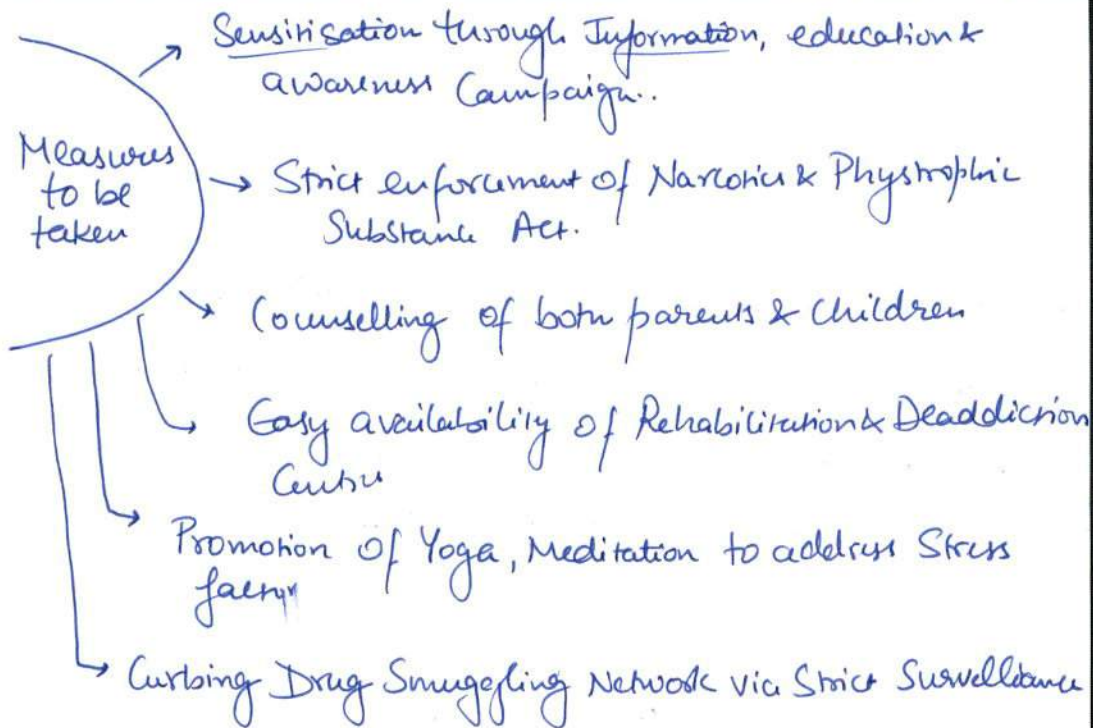 Sensitisation through Information, education &
awareness Campaign..
Measures
to be
taken
Strict enforcement of Narcotics & Phystrophic
Substance Act.
Counselling of both parents & Children
Easy availability of Rehabilitation & Deaddiction
Centres
Promotion of Yoga, Meditation to address Stress
factor
Curbing Drug Smuggling Network via Strict Survelliance